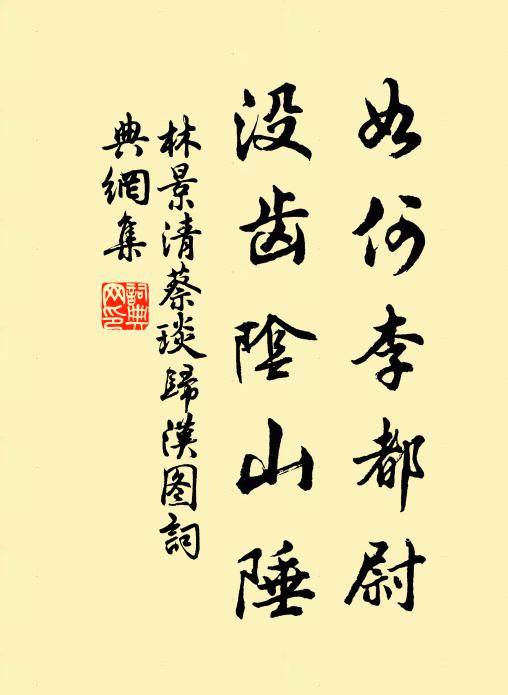 如何李都尉
没齿陰山陲
林景清蔡琰歸漢图詞
典網集
詞典网印